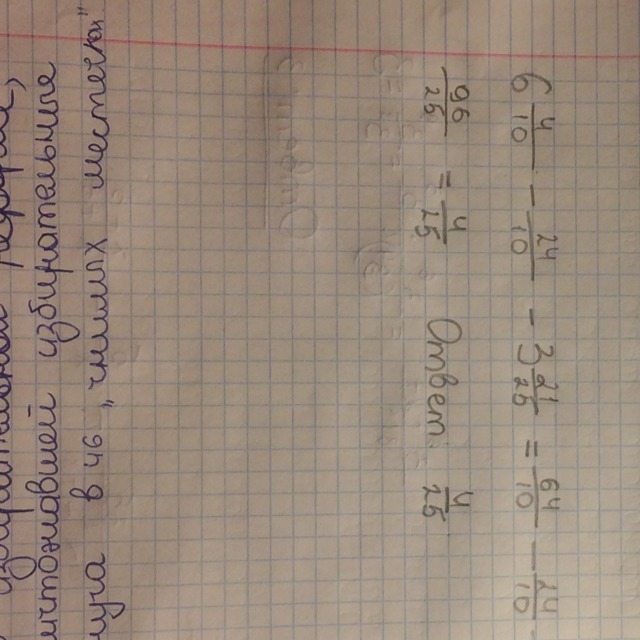 6 4/10 - 24/10 - 3 21/25 = 64/10 - 24/10 -
96/25 = 4/25 Ответ 4/25
реформы,
избирательные
в 46 „гнилых местечках"